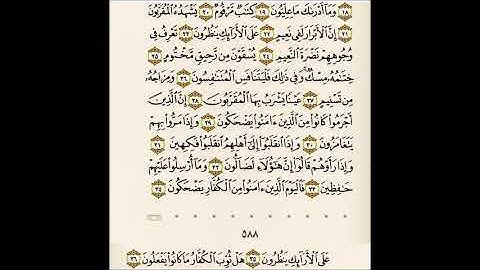 ﴿١٨﴾ وَمَآ أَدْرَىٰكَ مَا عِلِّيُّونَ ﴿١٩﴾ كِتَٰبٌ مَّرْقُومٌ ﴿٢٠﴾ يَشْهَدُهُ ٱلْمُقَرَّبُونَ
﴿٢١﴾ إِنَّ ٱلْأَبْرَارَ لَفِى نَعِيمٍ ﴿٢٢﴾ عَلَى ٱلْأَرَآئِكِ يَنظُرُونَ ﴿٢٣﴾ تَعْرِفُ فِى
وُجُوهِهِمْ نَضْرَةَ ٱلنَّعِيمِ ﴿٢٤﴾ يُسْقَوْنَ مِن رَّحِيقٍ مَّخْتُومٍ ﴿٢٥﴾
خِتَٰمُهُۥ مِسْكٌ ۚ وَفِى ذَٰلِكَ فَلْيَتَنَافَسِ ٱلْمُتَنَٰفِسُونَ ﴿٢٦﴾ وَمِزَاجُهُۥ
مِن تَسْنِيمٍ ﴿٢٧﴾ عَيْنًا يَشْرَبُ بِهَا ٱلْمُقَرَّبُونَ ﴿٢٨﴾ إِنَّ ٱلَّذِينَ
أَجْرَمُوا۟ كَانُوا۟ مِنَ ٱلَّذِينَ ءَامَنُوا۟ يَضْحَكُونَ ﴿٢٩﴾ وَإِذَا مَرُّوا۟ بِهِمْ
يَتَغَامَزُونَ ﴿٣٠﴾ وَإِذَا ٱنقَلَبُوٓا۟ إِلَىٰٓ أَهْلِهِمُ ٱنقَلَبُوا۟ فَكِهِينَ ﴿٣١﴾
وَإِذَا رَأَوْهُمْ قَالُوٓا۟ إِنَّ هَٰٓؤُلَآءِ لَضَآلُّونَ ﴿٣٢﴾ وَمَآ أُرْسِلُوا۟ عَلَيْهِمْ
حَٰفِظِينَ ﴿٣٣﴾ فَٱلْيَوْمَ ٱلَّذِينَ ءَامَنُوا۟ مِنَ ٱلْكُفَّارِ يَضْحَكُونَ ﴿٣٤﴾
٥٨٨
عَلَى ٱلْأَرَآئِكِ يَنظُرُونَ ﴿٣٥﴾ هَلْ ثُوِّبَ ٱلْكُفَّارُ مَا كَانُوا۟ يَفْعَلُونَ ﴿٣٦﴾